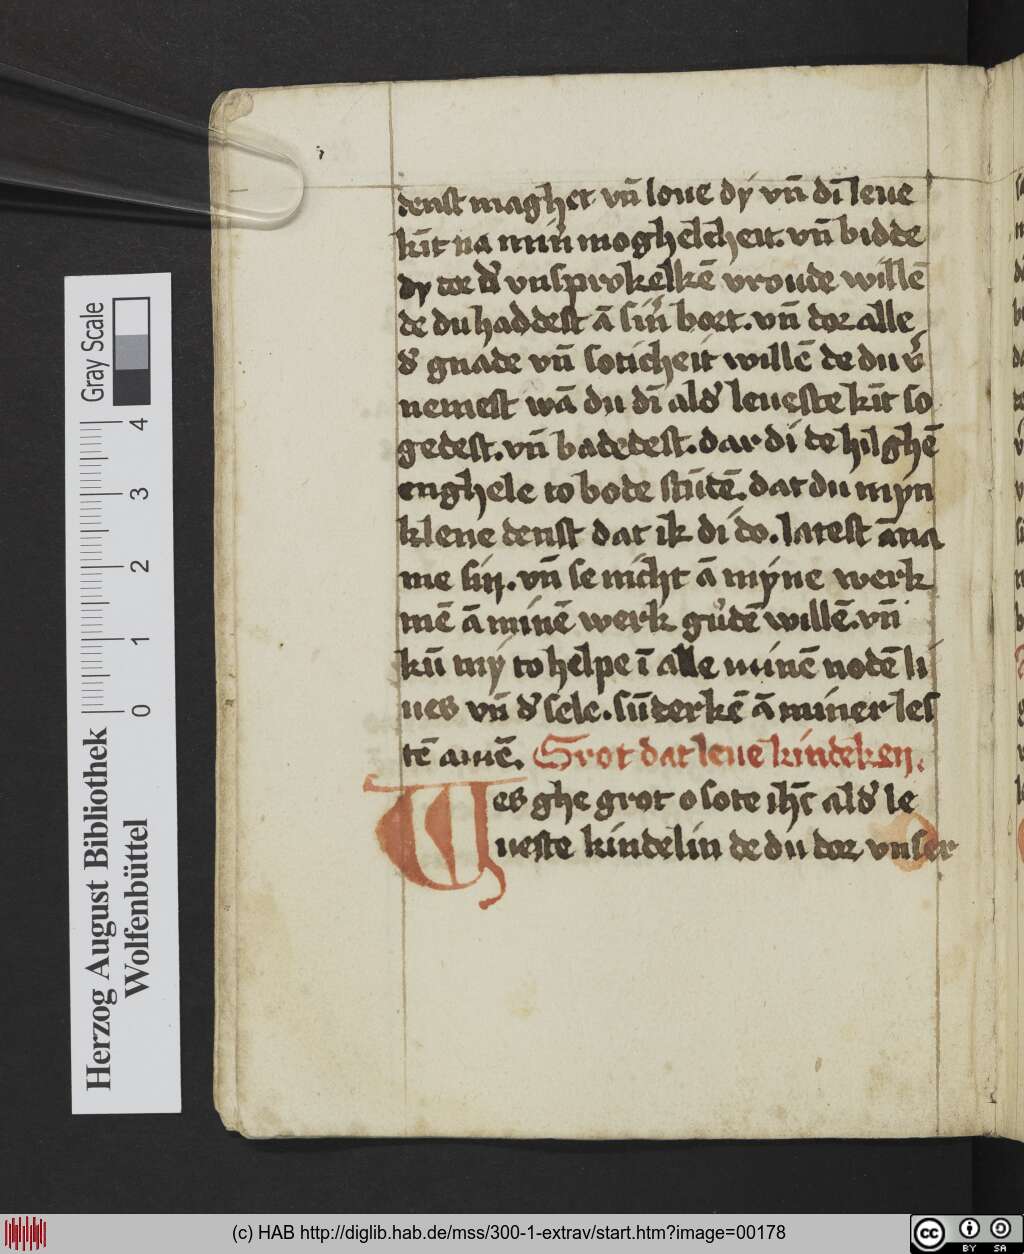 denst maghet vn̄ loue dy vn̄ dī leue
kīt na min̄ moghelcheit. vn̄ bidde
dy dor d' vnsprokelkē vroude willē
de du haddest ā sin̄ bort. vn̄ dor alle
d' gnade vn̄ soticheit willē de du v'
nemest wā du dī ald' leueste kīt so
gedest. vn̄ badedest. dar di de hilghē
enghele to bode stūdē. dat du myn
klene denst dat ik di do. latest āna
me sin. vn̄ se nicht ā myne werk
mē ā minē werk gůdē willē. vn̄
kū my to helpe ī alle minē nodē li
ues vn̄ d' sele. sūderkē ā miner les
tē amē. Grot dat leue kindeken.
Wes ghe grot o sote ih̄c ald' le
ueste kindelin de du dor vnser
Herzog August Bibliothek
Wolfenbüttel
0 1 2 3 4
Gray Scale
(c) HAB http://diglib.hab.de/mss/300-1-extrav/start.htm?image=00178
cc BY SA